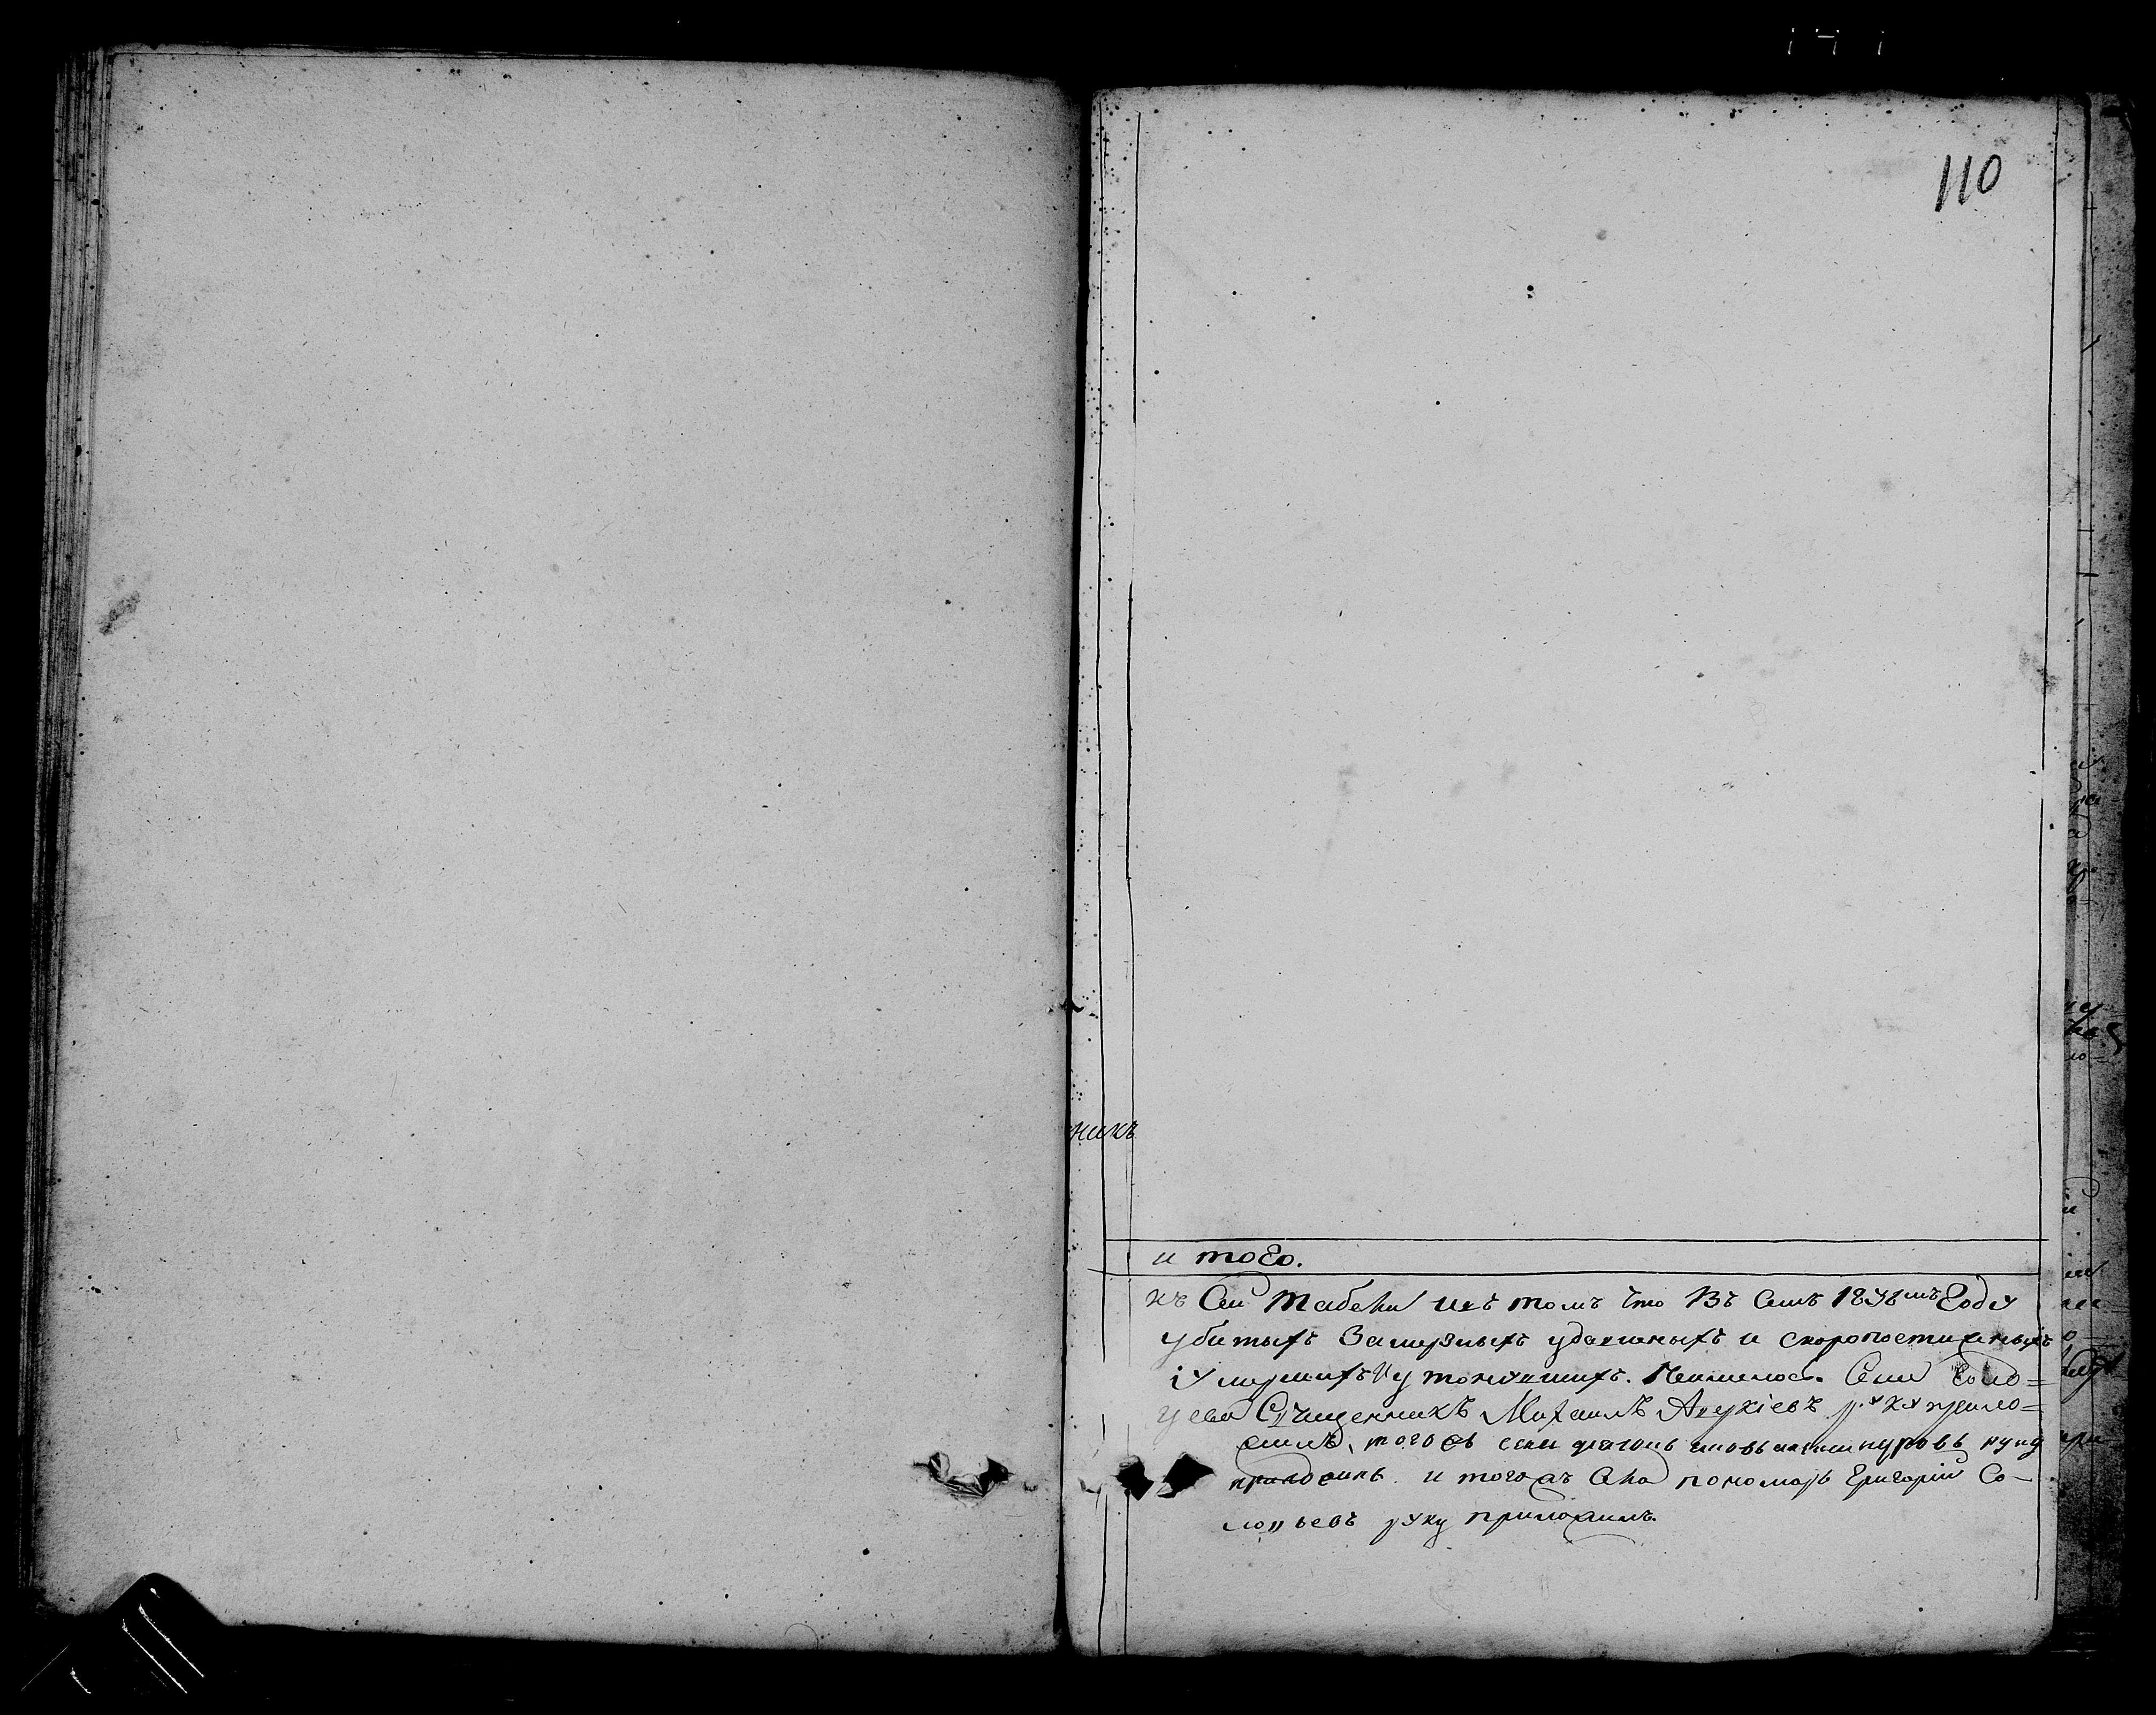 110
никъ
и того.
къ Сей табели и въ томъ что Въ Семъ 1838мъ Году
убитыхъ Замерзлыхъ удавленыхъ и скоропостижныхъ
и Умершихъ и утонувшихъ. Неимелось. Села
Священникъ Михаилъ руку прило=
жилъ, тогожъ села руку
приложилъ и тогожъ Села пономарь Григорій Со-
ловьевъ руку приложилъ